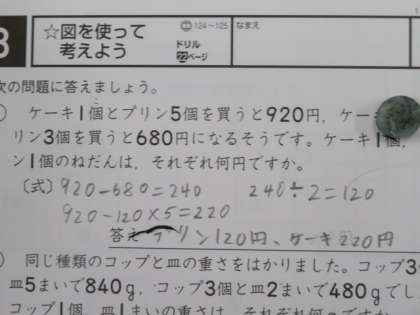 3 ☆図を使って 124~125 なまえ
考えよう ドリル
22ページ
次の問題に答えましょう。
ケーキ1個とプリン5個を買うと920円,ケー
リン3個を買うと680円になるそうです。ケーキ1個,
ン1個のねだんは,それぞれ何円ですか。
〔式〕920-680=240 240÷2=120
920-120×5=220
答え プリン120円、ケーキ220円
同じ種類のコップと皿の重さをはかりました。コップ3
皿5まいで840g,コップ3個と皿2まいで480gでし
コップ1個,皿1まいの重さは,それぞれ何